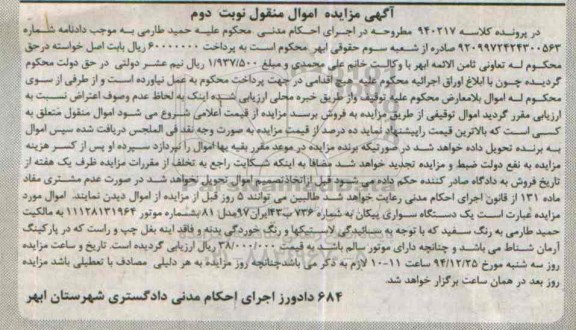 آگهی مزایده اموال منقول نوبت دوم
در پرونده کلاسه ۹۴۰۲۱۷ مطروحه در اجرای احکام مدنی محکوم علیه حمید طارمی به موجب دادنامه شماره
۹۲۰۹۹۷۲۴۲۴۳۰۰۵۶۳ صادره از شعبه سوم حقوقی ابهر محکوم است به پرداخت ۶۰۰۰۰۰۰۰ ریال بابت اصل خواسته در حق
محکوم له تعاونی ثامن الائمه ابهر با وکالت خانم علی محمدی و مبلغ ۱/۹۳۷/۵۰۰ ریال نیم عشر دولتی در حق دولت محکوم
گردیده چون با ابلاغ اوراق اجرائیه محکوم علیه هیچ اقدامی در جهت پرداخت محکوم به عمل نیاورده است و از طرفی از سوی
محکوم له اموال بلامعارض محکوم علیه توقیف واز طریق خبره محلی ارزیابی شده اینک به لحاظ عدم وصوف اعتراض نسبت به
ارزیابی مقرر گردید اموال توقیفی از طریق مزایده به فروش برسد مزایده از قیمت اعلامی شروع می شود اموال منقول متعلق به
کسی است که بالاترین قیمت راپیشنهاد نماید ده درصد از قیمت مزایده به صورت وجه نقد فی المجلس دریافت شده سپس اموال
به برنده تحویل داده خواهد شد در صورتیکه برنده مزایده در موعد مقرر بقیه بها اموال را نپردازد سپرده او پس از کسر هزینه
مزایده به نفع دولت ضبط و مزایده تجدید خواهد شد مضافا به اینکه شکایت راجع به تخلف از مقررات مزایده ظرف یک هفته از
تاریخ فروش به دادگاه صادر کننده حکم داده می شود قبل ازاتخاذتصمیم اموال تحویل نخواهد شد در صورت عدم مشتری مفاد
ماده ۱۳۱ از قانون اجرای احکام مدنی رعایت خواهد شد طالبین می توانند ۵ روز قبل از مزایده از اموال دیدن نمایند اموال مورد
مزایده عبارت است یک دستگاه سواری پیکان به شماره ۷۳۶ ب۴۳ایران۹۷مدل ۸۱ بشماره موتور ۱۱۱۲۸۱۳۱۹۶۴ به مالکیت
حمید طارمی به رنگ سفید که با توجه به سائیدگی لاستیکها و رنگ خوردگی بدنه و فاقد اینه بغل چپ و راست که در پارکینگ
آرمان شناط می باشد و چنانچه دارای موتور سالم باشد به قیمت ۳۸/۰۰۰/۰۰۰ ریال ارزیابی گردیده است. تاریخ و ساعت مزایده
روز سه شنبه مورخ ۹۴/۱۲/۲۵ ساعت ۱۱-۱۰ لازم به ذکر می باشدچنانچه روز مزایده به هر دلیلی مصادف با تعطیلی باشد مزایده
روز بعد در همان ساعت برگزار خواهد شد.
۶۸۴ دادورز اجرای احکام مدنی دادگستری شهرستان ابهر